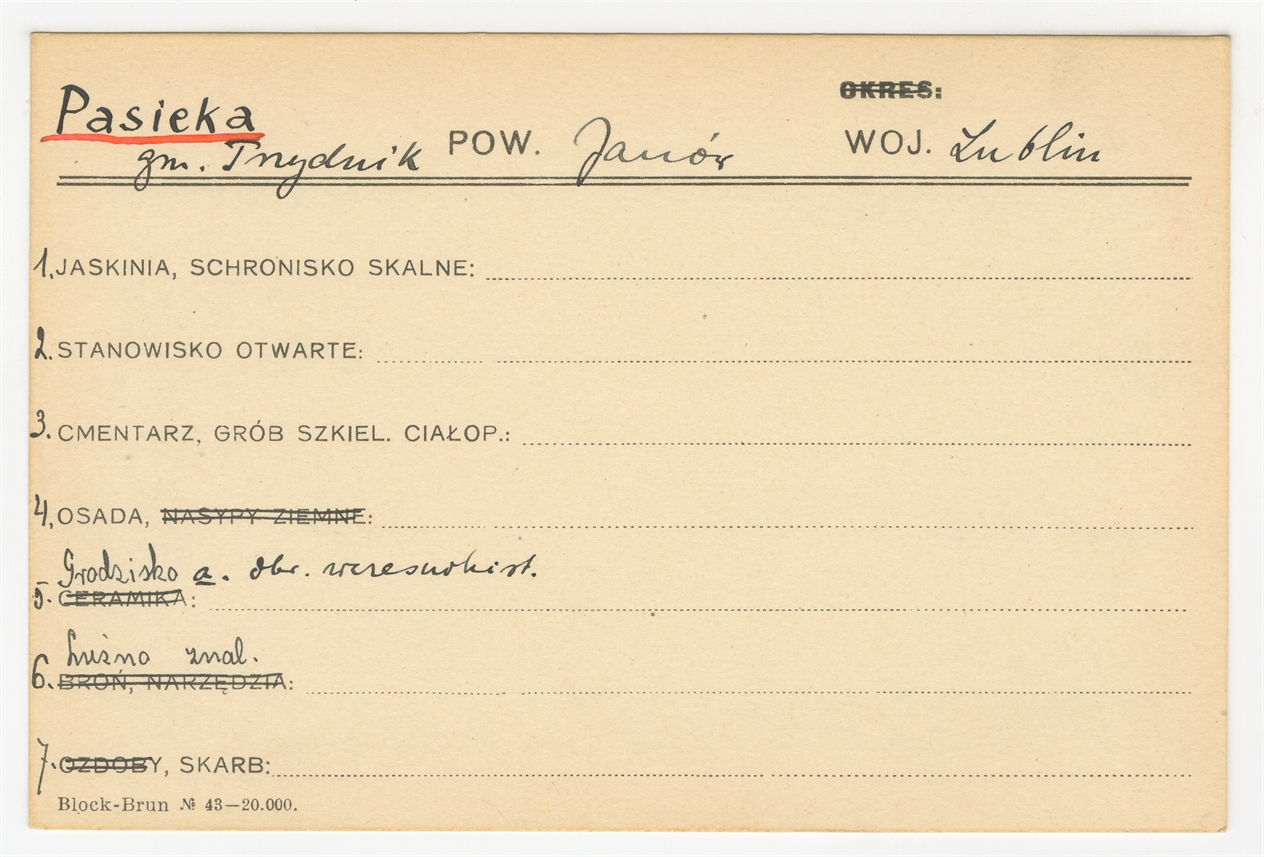 OKRES:
Pasieka
gm. Trzydnik POW. Janów WOJ. Lublin
1. JASKINIA, SCHRONISKO SKALNE:
2. STANOWISKO OTWARTE:
3. CMENTARZ, GRÓB SZKIEL. CIAŁOP.:
4. OSADA, NASYPY ZIEMNE:
Grodzisko a. obr. wczesnohist.
5. CERAMIKA:
Luźno znal.
6. BROŃ, NARZĘDZIA:
7. OZDOBY, SKARB:
Block-Brun № 43—20.000.